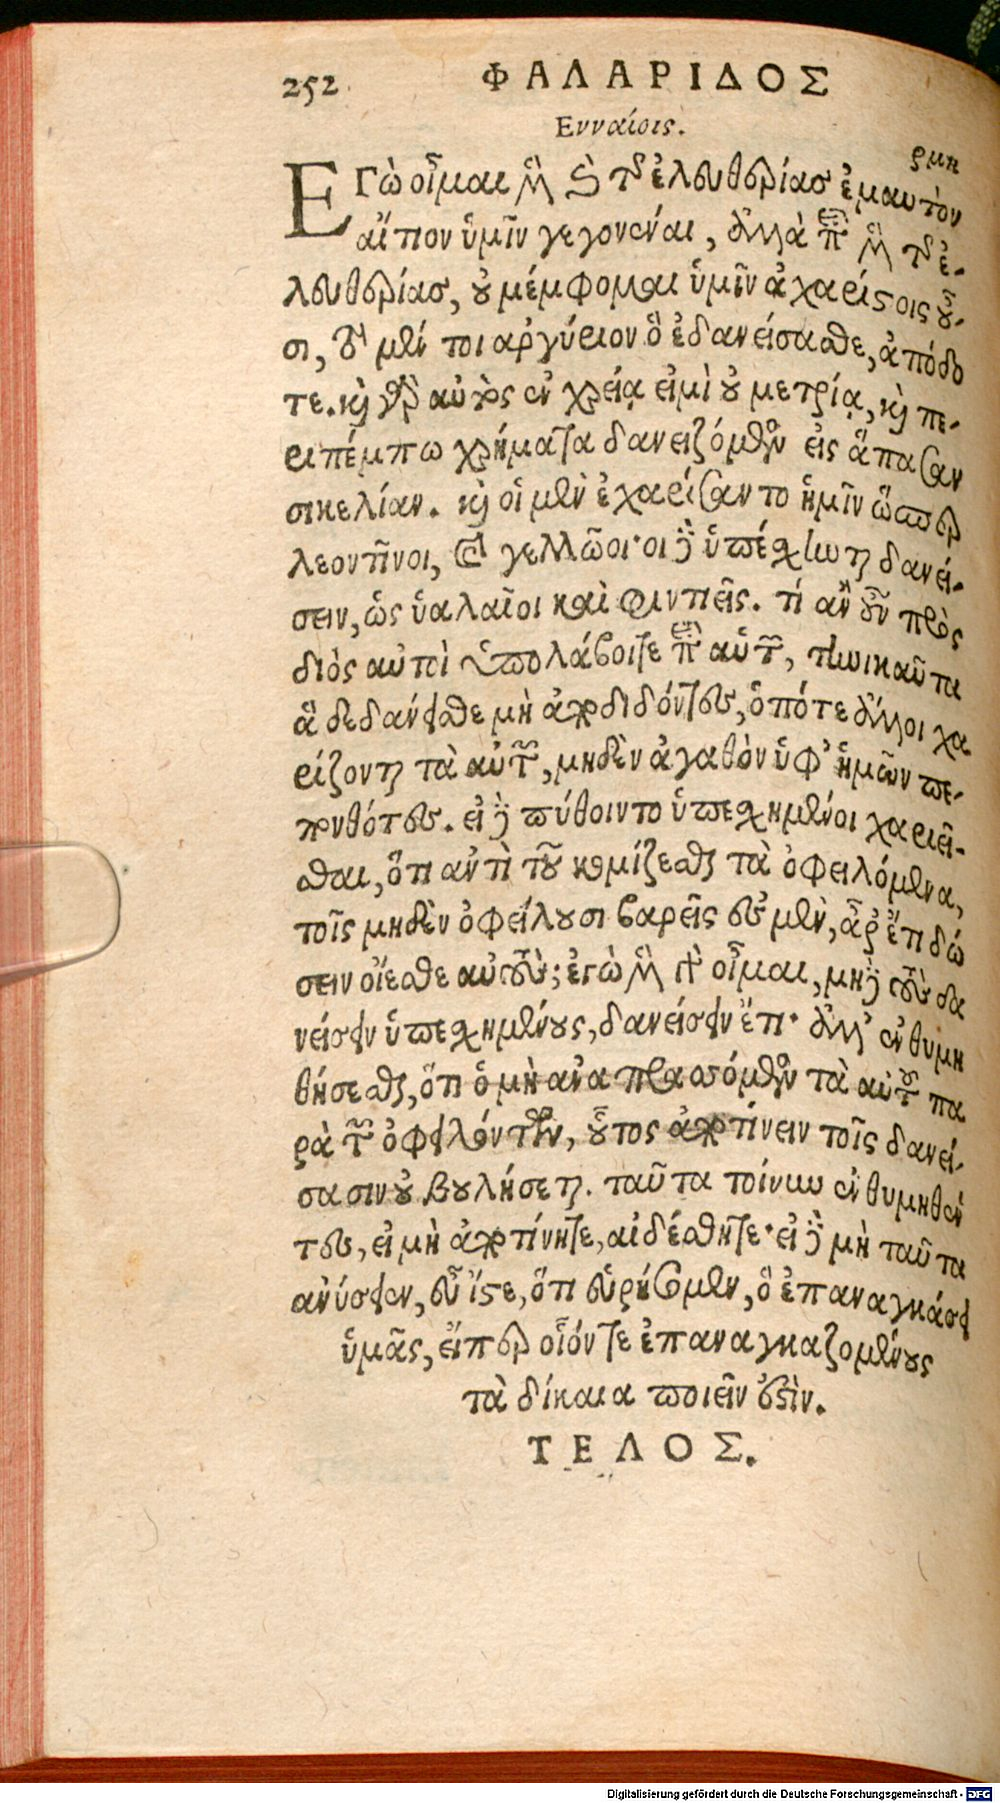 252 ΦΑΛΑΡΙΔΟΣ
Ενναίοις.
ρμη
ΕΓὼ οἶμαι μὲν καὶ τῆς ἐλευθερίας ἐμαυτὸν
αἴτιον ὑμῖν γεγονέναι, ἀλλὰ περὶ μὲν τῆς ἐ-
λευθερίας, οὐ μέμφομαι ὑμῖν ἀχαρίστοις οὖ-
σι, τὸ μέν τοι ἀργύριον ὃ ἐδανείσασθε, ἀπόδο
τε. καὶ γὰρ αὐτὸς ἐν χρείᾳ εἰμὶ οὐ μετρίᾳ, καὶ πε-
ριπέμπω χρήματα δανειζόμενος εἰς ἅπασαν
σικελίαν. καὶ οἱ μὲν ἐχαρίσαντο ἡμῖν ὥσπερ
λεοντῖνοι, καὶ γελλῶοι· οἱ δὲ ὑπέσχηνται δανεί-
σειν, ὡς ὑαλαῖοι καὶ φιντιεῖς. τί ἂν οὖν πρὸς
διὸς αὐτοὶ ὑπολάβοιτε περὶ αὑτῶν, τηνικαῦτα
ἃ δεδάνεισθε μὴ ἀποδιδόντες, ὁπότε ἄλλοι χα
ρίζονται τὰ αὑτῶν, μηδὲν ἀγαθὸν ὑφ' ἡμῶν πε-
πονθότες. εἰ δὲ πύθοιντο ὑπεσχημένοι χαριεῖ-
σθαι, ὅτι ἀντὶ τοῦ κομίζεσθαι τὰ ὀφειλόμενα,
τοῖς μηδὲν ὀφείλουσι βαρεῖς ἐσμὲν, ἆρ' ἔτι δώ
σειν οἴεσθε αὐτοὺς; ἐγὼ μὲν οὐκ οἶμαι, μὴ δὲ τοὺς δα
νείσειν ὑπεσχημένους, δανείσειν ἔτι· ἀλλ' ἐνθυμη
θήσεσθαι, ὅτι ὁ μὴ ἀναπρασσόμενος τὰ αὑτοῦ πα
ρὰ τῶν ὀφειλόντων, οὗτος ἀποτίνειν τοῖς δανεί-
σασιν οὐ βουλήσεται. ταῦτα τοίνυν ἐνθυμηθέν
τες, εἰ μὴ ἀποτίνητε, αἰδέσθητε· εἰ δὲ μὴ ταῦτα
ἀνύσειεν, εὖ ἴστε, ὅτι εὑρήσομεν, ὃ ἐπαναγκάσει
ὑμᾶς, εἴπερ οἷόν τε ἐπαναγκαζομένους
τὰ δίκαια ποιεῖν ἐστὶν.
ΤΕΛΟΣ.
Digitalisierung gefördert durch die Deutsche Forschungsgemeinschaft - DFG